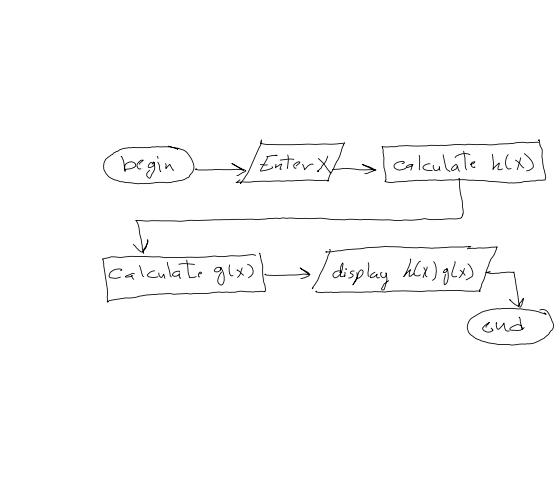 begin
Enter X
calculate h(x)
Calculate g(x)
display h(x) g(x)
end